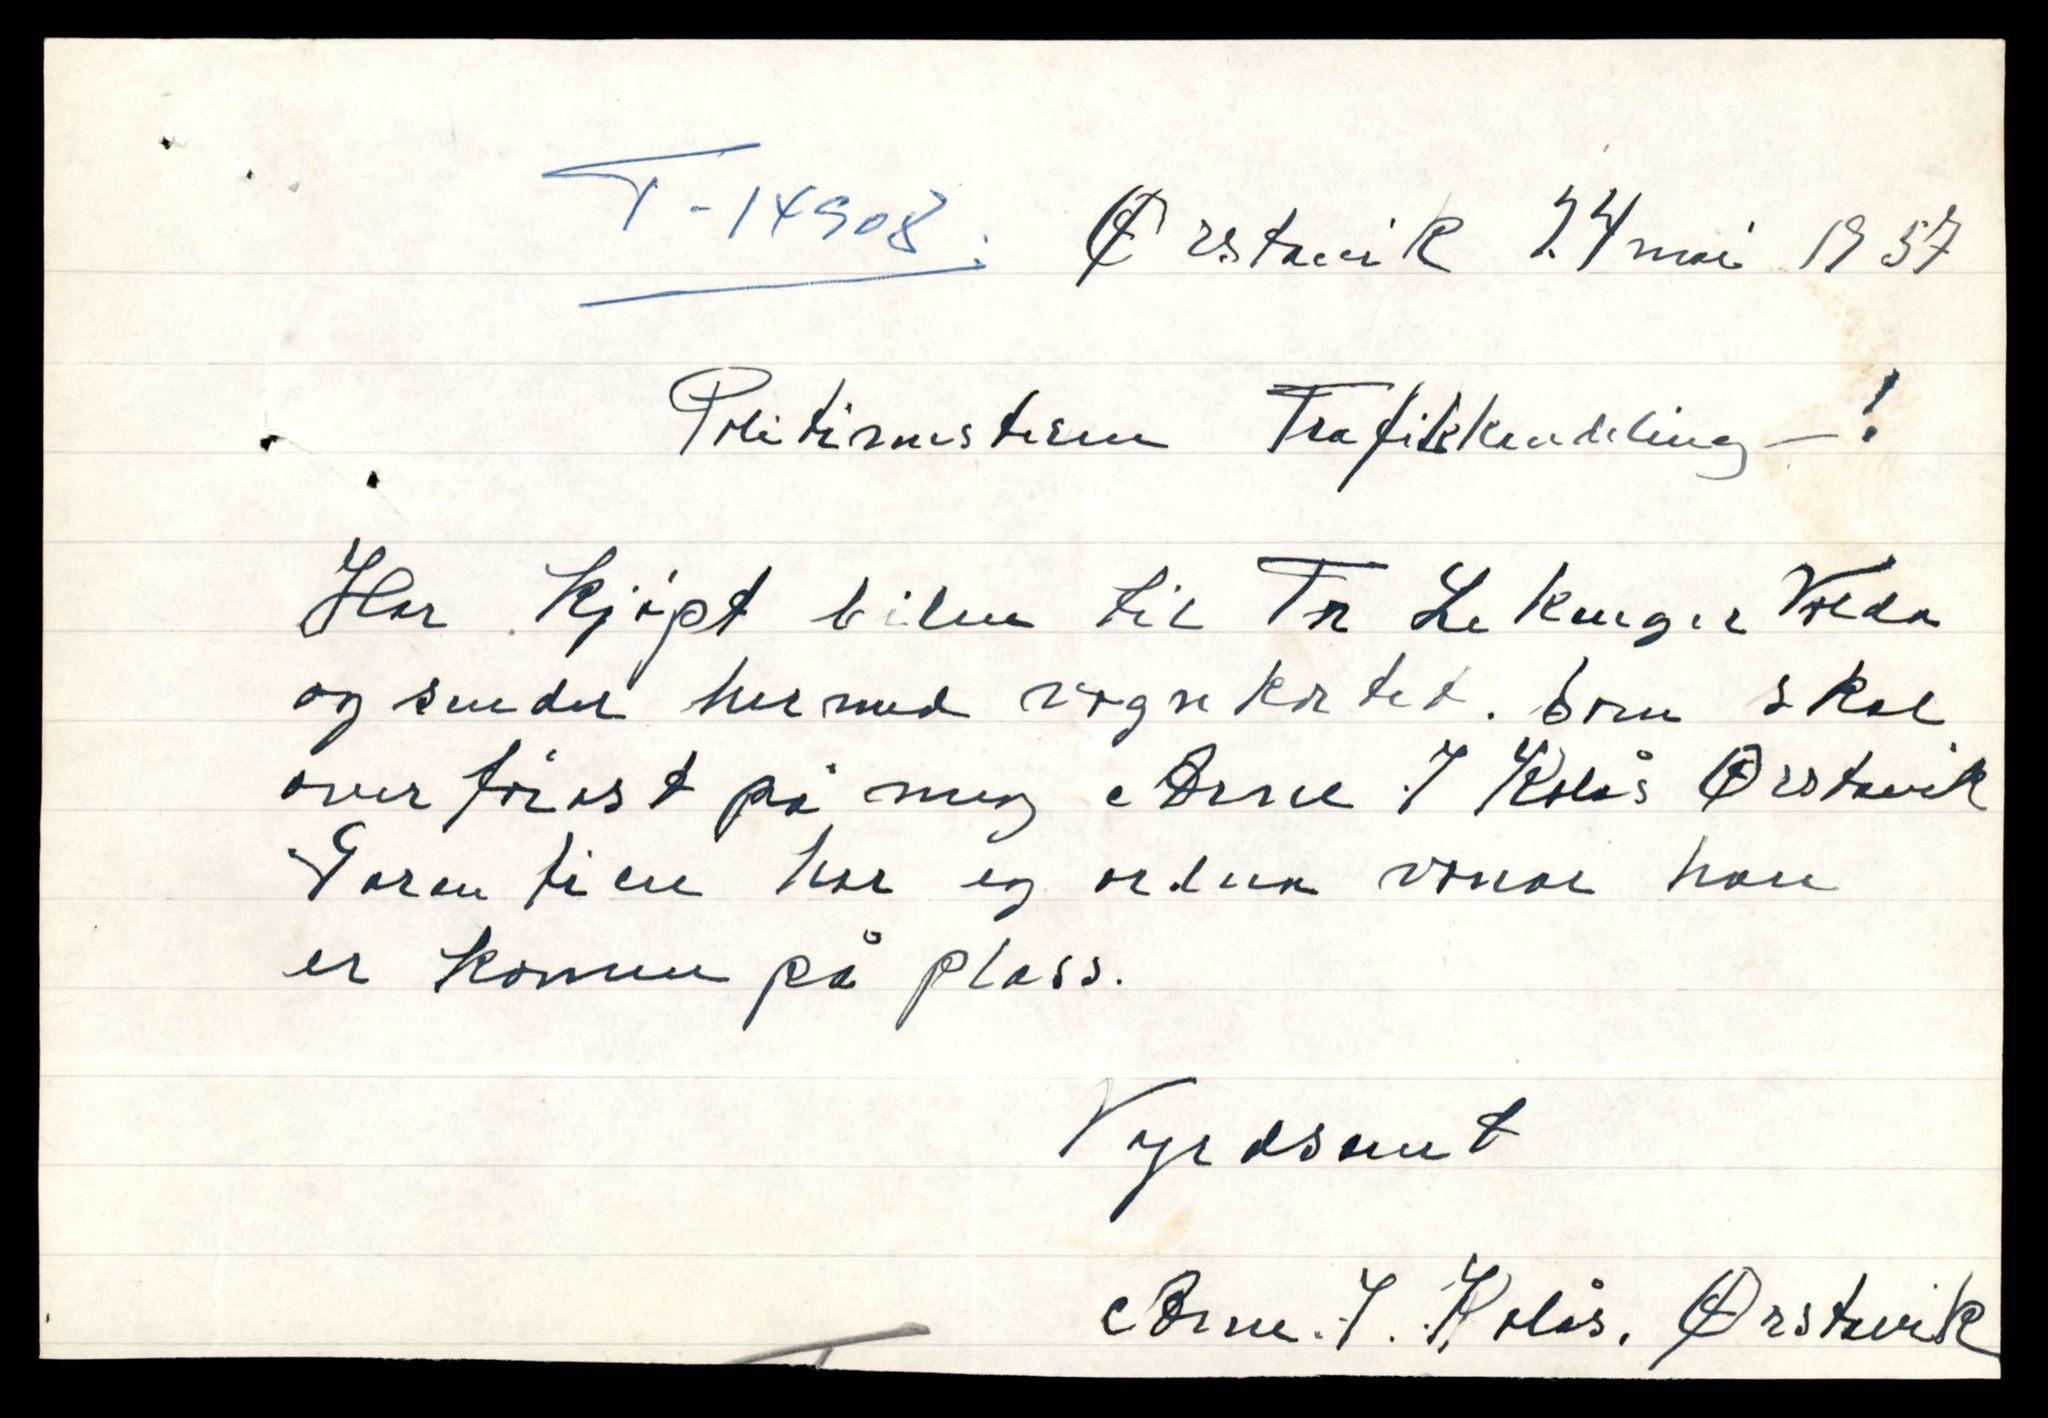 T-14908.
Ørstavik 24 mai 1957
Politimesteren Trafikkavdeling - !
Har kjöpt bilen til Tr Lekanger Volda
og sender hermed vognkortet. som skal
overföras t på meg Arne I Kolås Ørstavik
Garantien har eg ordna vonar han
er komen på plass.
Vyrdsamt
Arne. I. Kolås. Ørstavik